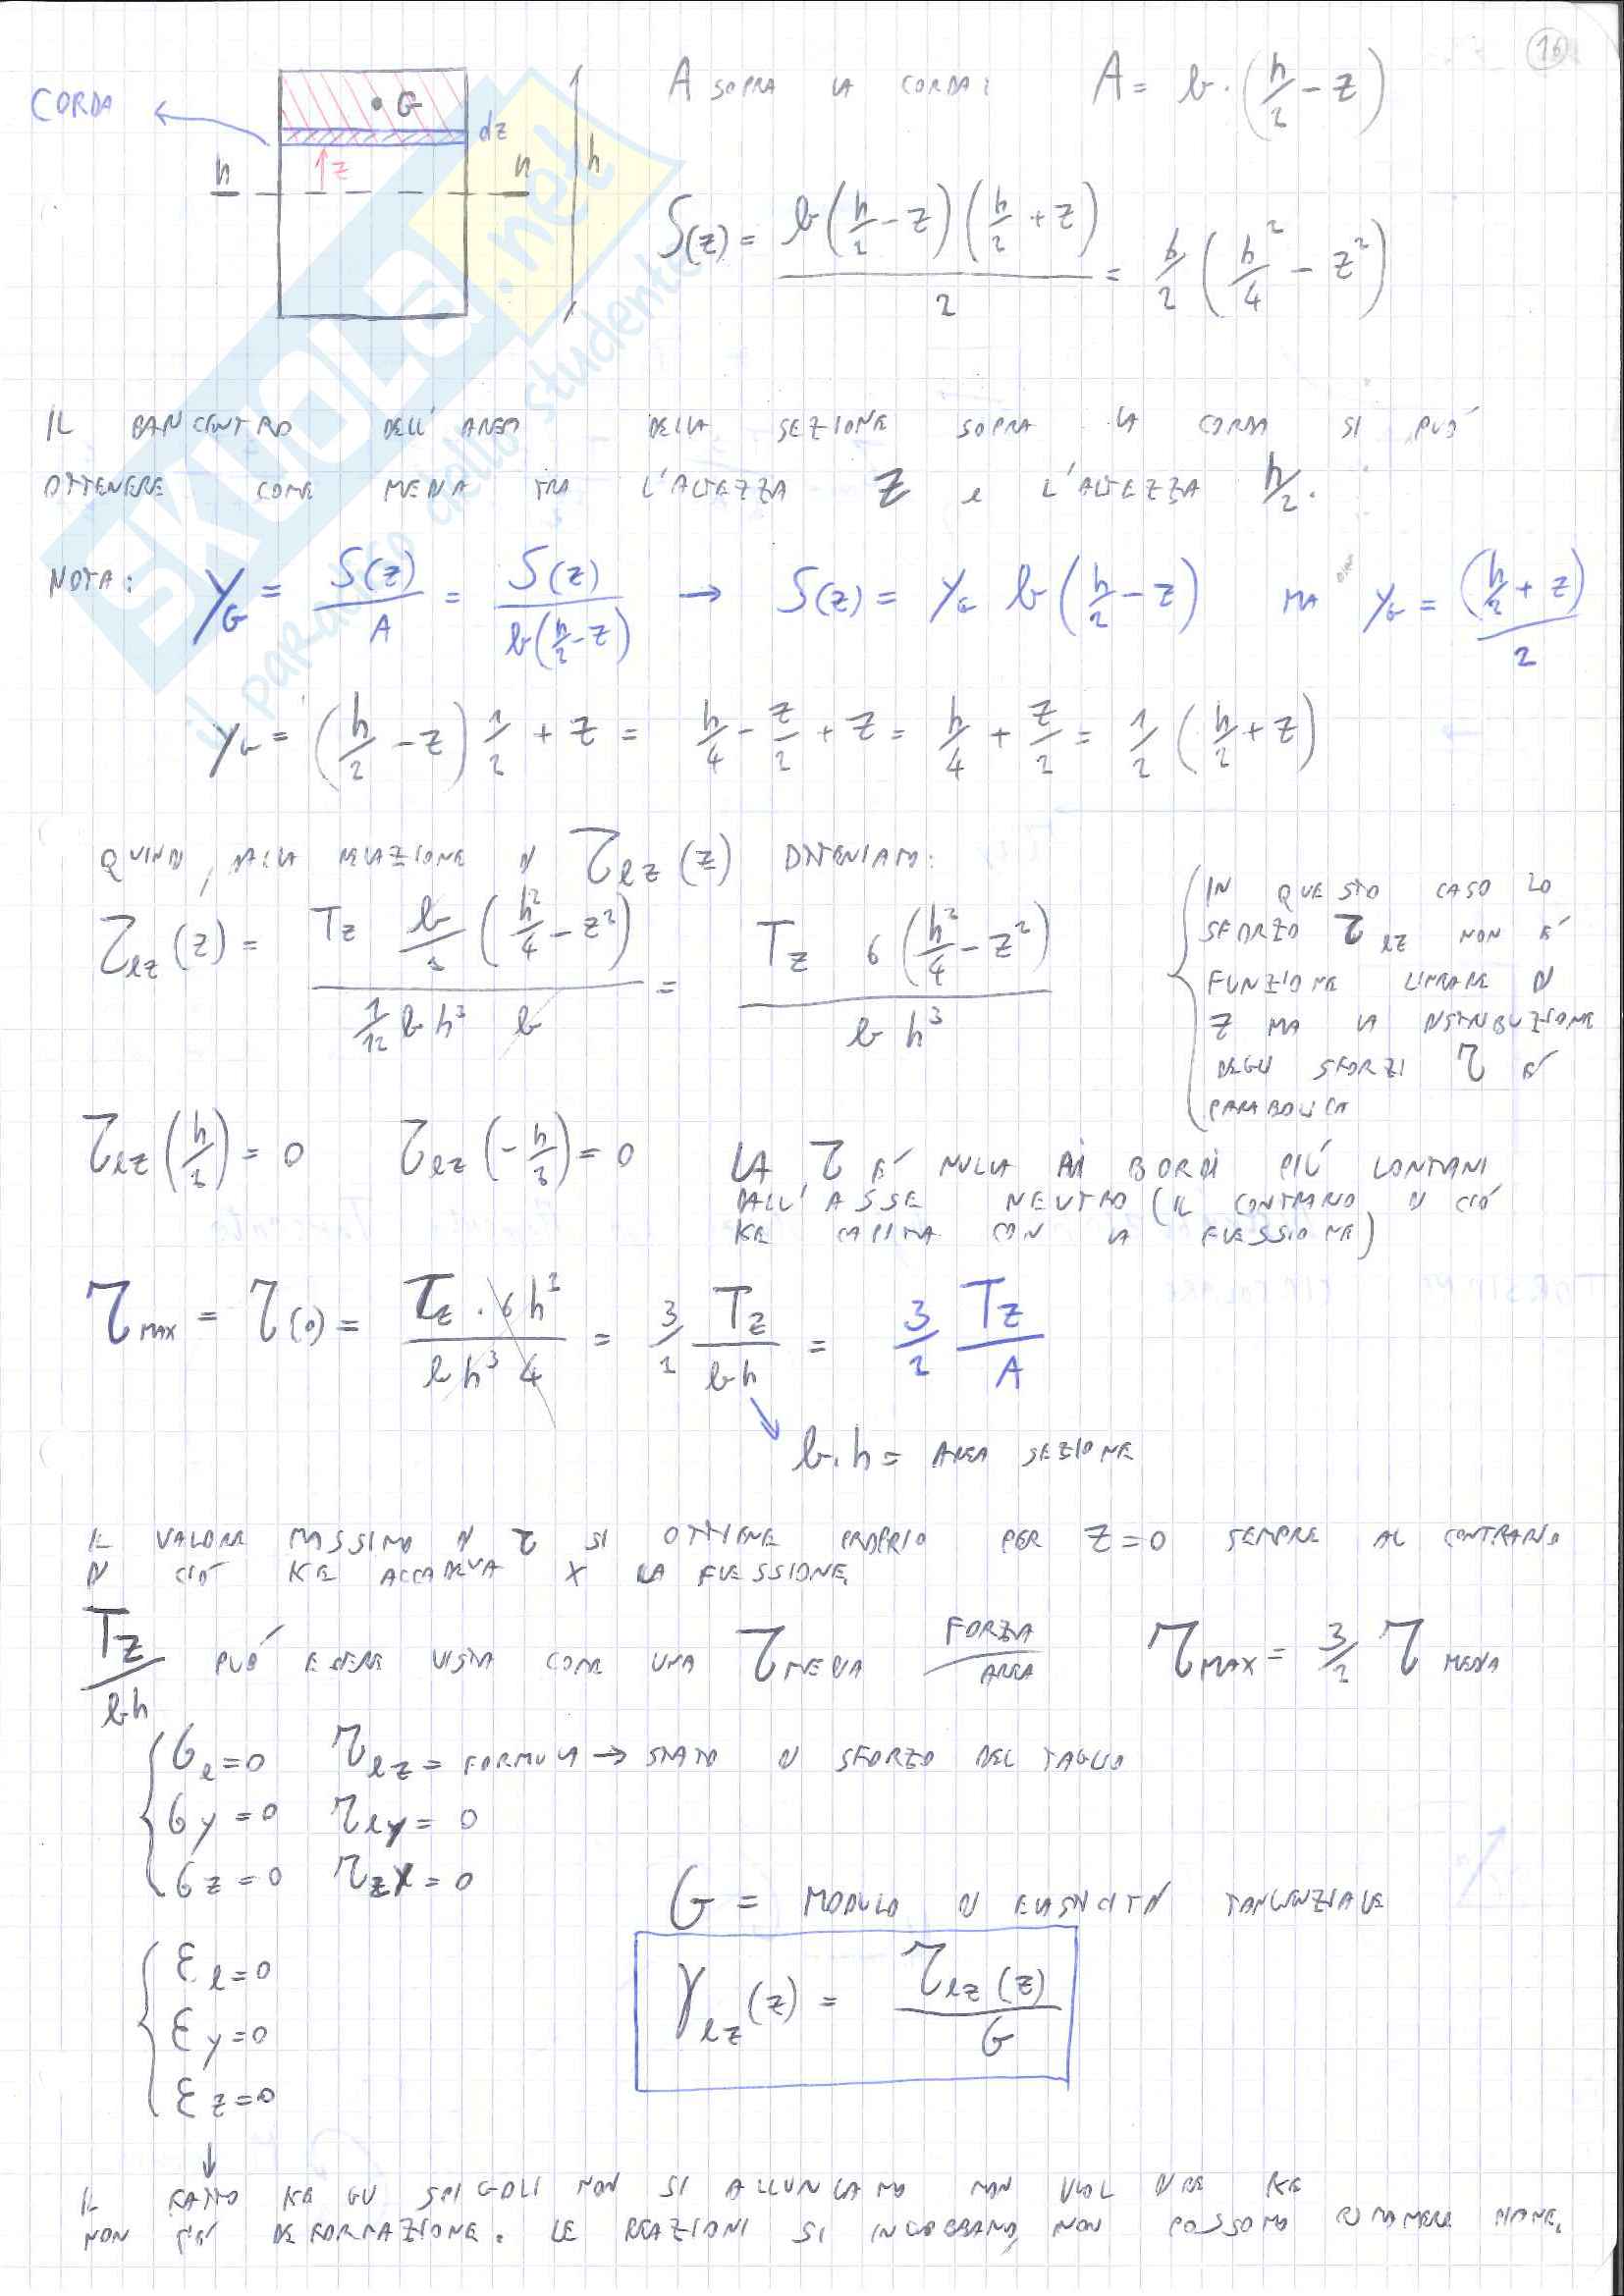 16
CORDA
G
dz
z
n
n
h
A SOPRA LA CORDA: A = b·(h/2 - z)
S(z) = b(h/2 - z)(h/2 + z)/2 = b/2 (h²/4 - z²)
IL BARICENTRO DELL'AREA DELLA SEZIONE SOPRA LA CORDA SI PUÓ
OTTENERE COME MEDIA TRA L'ALTEZZA z e L'ALTEZZA h/2.
NOTA: y_G = S(z)/A = S(z)/b(h/2 - z) → S(z) = y_G b(h/2 - z) MA y_G = (h/2 + z)/2
y_G = (h/2 - z) 1/2 + z = h/4 - z/2 + z = h/4 + z/2 = 1/2 (h/2 + z)
QUINDI, DALLA RELAZIONE DI τ_lz (z) OTTENIAMO:
τ_lz (z) = T_z b/2 (h²/4 - z²) / 1/12 b h³ b = T_z 6 (h²/4 - z²) / b h³
IN QUESTO CASO LO
SFORZO τ_lz NON É
FUNZIONE LINEARE DI
z MA LA DISTRIBUZIONE
DEGLI SFORZI τ É
PARABOLICA
τ_lz (h/2) = 0 τ_lz (-h/2) = 0
LA τ É NULLA AI BORDI PIÚ LONTANI
DALL'ASSE NEUTRO (IL CONTRARIO DI CIÓ
KE CAPITA CON LA FLESSIONE)
τ_MAX = τ(0) = T_z · 6 h² / b h³ 4 = 3/2 T_z/bh = 3/2 T_z/A
b·h = AREA SEZIONE
IL VALORE MASSIMO DI τ SI OTTIENE PROPRIO PER z=0 SEMPRE AL CONTRARIO
DI CIÓ KE ACCADEVA X LA FLESSIONE.
T_z/bh PUÓ ESSERE VISTA COME UNA τ_MEDIA FORZA/AREA τ_MAX = 3/2 τ_MEDIA
σ_l = 0 τ_lz = FORMULA → STATO DI SFORZO DEL TAGLIO
σ_y = 0 τ_ly = 0
σ_z = 0 τ_zy = 0
G = MODULO DI ELASTICITÁ TANGENZIALE
γ_lz (z) = τ_lz (z)/G
ε_l = 0
ε_y = 0
ε_z = 0
↓
IL FATTO KE GLI SPIGOLI NON SI ALLUNGANO NON VUOL DIRE KE
NON C'É DEFORMAZIONE. LE SI NON POSSONO RIMANERE PIANE.
SKUOLa.net
il paradiso dello studente